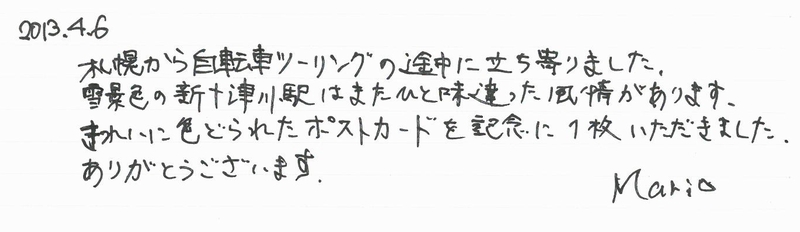 2013.4.6
札幌から自転車ツーリングの途中に立ち寄りました.
雪景色の新十津川駅はまたひと味違った風情があります.
きれいに色どられたポストカードを記念に1枚いただきました.
ありがとうございます.
Mario